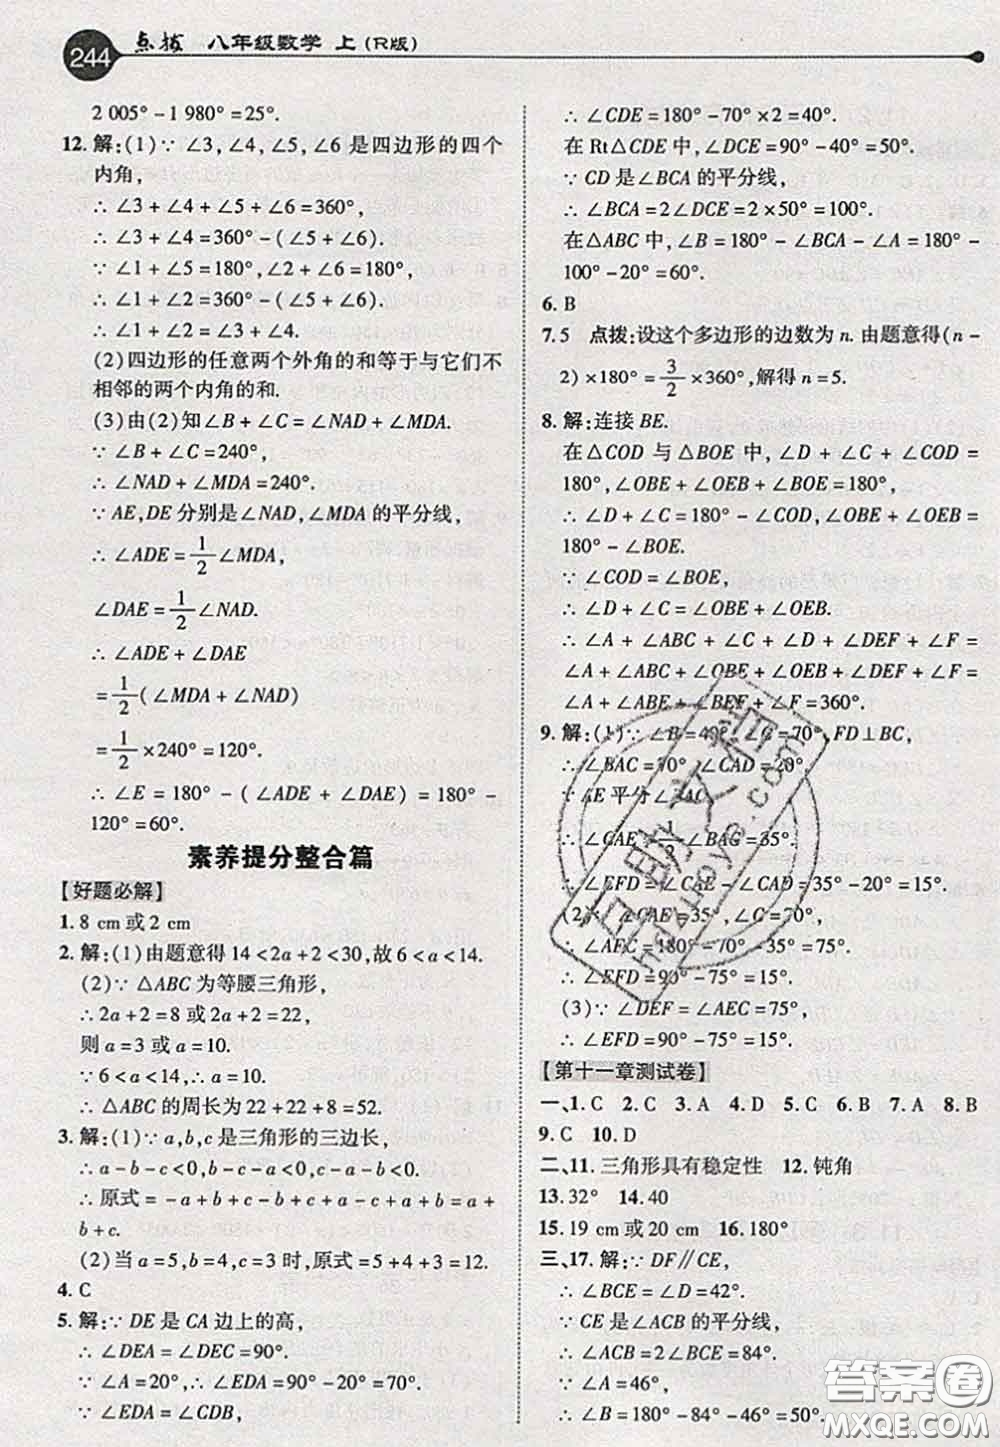 244 点拨 八年级数学 上(R版)
2 005° - 1 980° = 25°.
12. 解:(1)∵ ∠3,∠4,∠5,∠6 是四边形的四个
内角,
∴ ∠3 + ∠4 + ∠5 + ∠6 = 360°,
∴ ∠3 + ∠4 = 360° - (∠5 + ∠6).
∵ ∠1 + ∠5 = 180°,∠2 + ∠6 = 180°,
∴ ∠1 + ∠2 = 360° - (∠5 + ∠6).
∴ ∠1 + ∠2 = ∠3 + ∠4.
(2)四边形的任意两个外角的和等于与它们不
相邻的两个内角的和.
(3)由(2)知∠B + ∠C = ∠NAD + ∠MDA.
∵ ∠B + ∠C = 240°,
∴ ∠NAD + ∠MDA = 240°.
∵ AE,DE 分别是∠NAD,∠MDA 的平分线,
∴ ∠ADE = 1/2 ∠MDA,
∠DAE = 1/2 ∠NAD.
∴ ∠ADE + ∠DAE
= 1/2 (∠MDA + ∠NAD)
= 1/2 × 240° = 120°.
∴ ∠E = 180° - (∠ADE + ∠DAE) = 180° -
120° = 60°.
素养提分整合篇
【好题必解】
1. 8 cm 或 2 cm
2. 解:(1)由题意得 14 < 2a + 2 < 30,故 6 < a < 14.
(2)∵ △ABC 为等腰三角形,
∴ 2a + 2 = 8 或 2a + 2 = 22,
则 a = 3 或 a = 10.
∵ 6 < a < 14,∴ a = 10.
∴ △ABC 的周长为 22 + 22 + 8 = 52.
3. 解:(1)∵ a,b,c 是三角形的三边长,
∴ a - b - c < 0,b - c - a < 0,c - a - b < 0.
∴ 原式 = -a + b + c - b + c + a - c + a + b = a +
b + c.
(2)当 a = 5,b = 4,c = 3 时,原式 = 5 + 4 + 3 = 12.
4. C
5. 解:∵ DE 是 CA 边上的高,
∴ ∠DEA = ∠DEC = 90°.
∵ ∠A = 20°,∴ ∠EDA = 90° - 20° = 70°.
∵ ∠EDA = ∠CDB,
∴ ∠CDE = 180° - 70° × 2 = 40°.
在 Rt△CDE 中,∠DCE = 90° - 40° = 50°.
∵ CD 是∠BCA 的平分线,
∴ ∠BCA = 2∠DCE = 2 × 50° = 100°.
在△ABC 中,∠B = 180° - ∠BCA - ∠A = 180° -
100° - 20° = 60°.
6. B
7. 5 点拨:设这个多边形的边数为 n. 由题意得(n -
2) × 180° = 3/2 × 360°,解得 n = 5.
8. 解:连接 BE.
在△COD 与△BOE 中,∠D + ∠C + ∠COD =
180°,∠OBE + ∠OEB + ∠BOE = 180°,
∴ ∠D + ∠C = 180° - ∠COD,∠OBE + ∠OEB =
180° - ∠BOE.
∵ ∠COD = ∠BOE,
∴ ∠D + ∠C = ∠OBE + ∠OEB.
∴ ∠A + ∠ABC + ∠C + ∠D + ∠DEF + ∠F =
∠A + ∠ABC + ∠OBE + ∠OEB + ∠DEF + ∠F =
∠A + ∠ABE + ∠BEF + ∠F = 360°.
9. 解:(1)∵ ∠B = 40°,∠C = 70°,FD⊥BC,
∴ ∠BAC = 70°,∠CAD = 20°.
∵ AE 平分∠BAC,
∴ ∠CAE = 1/2 ∠BAC = 35°.
∴ ∠EFD = ∠CAE - ∠CAD = 35° - 20° = 15°.
(2)∵ ∠CAE = 35°,∠C = 70°,
∴ ∠AEC = 180° - 70° - 35° = 75°.
∴ ∠EFD = 90° - 75° = 15°.
(3)∵ ∠DEF = ∠AEC = 75°,
∴ ∠EFD = 90° - 75° = 15°.
【第十一章测试卷】
一、1. C 2. C 3. A 4. D 5. C 6. B 7. A 8. B
9. C 10. D
二、11. 三角形具有稳定性 12. 钝角
13. 32° 14. 40
15. 19 cm 或 20 cm 16. 180°
三、17. 解:∵ DF∥CE,
∴ ∠BCE = ∠D = 42°.
∵ CE 是∠ACB 的平分线,
∴ ∠ACB = 2∠BCE = 84°.
∵ ∠A = 46°,
∴ ∠B = 180° - 84° - 46° = 50°.
答案圈
MXQE.COM